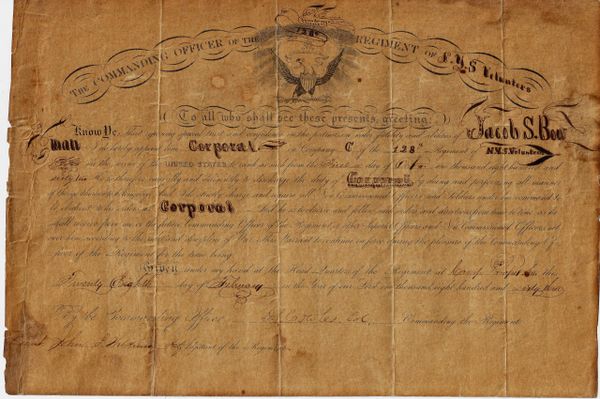 128th
THE COMMANDING OFFICER OF THE REGIMENT OF N.Y.S Volunteers
To all who shall see these presents, greeting:
Know Ye, That reposing special trust and confidence in the patriotism, valor, fidelity and abilities of Jacob S. Bow
man I do hereby appoint him Corporal in Company C of the 128th Regiment of N.Y.S. Volunteers
in the service of the UNITED STATES to rank as such from the First day of one thousand eight hundred and
sixty He is therefore carefully and diligently to discharge the duty of Corporal by doing and performing all manner
of things thereunto belonging. And I do strictly charge and require all Non-Commissioned Officers and Soldiers under his command to
be obedient to his orders as Corporal And he is to observe and follow such orders and directions from time to time as he
shall receive from me or the future Commanding Officer of the Regiment, or other Superior Officers and Non-Commissioned Officers set
over him, according to the rules and discipline of War. This Warrant to continue in force during the pleasure of the Commanding Of-
ficer of the Regiment for the time being.
Given under my hand at the Head Quarters of the Regiment at Camp this
Twenty Eighth day of February in the Year of our Lord one thousand eight hundred and sixty three
By the Commanding Officer Col. Commanding the Regiment.
John Adjutant of the Regiment.